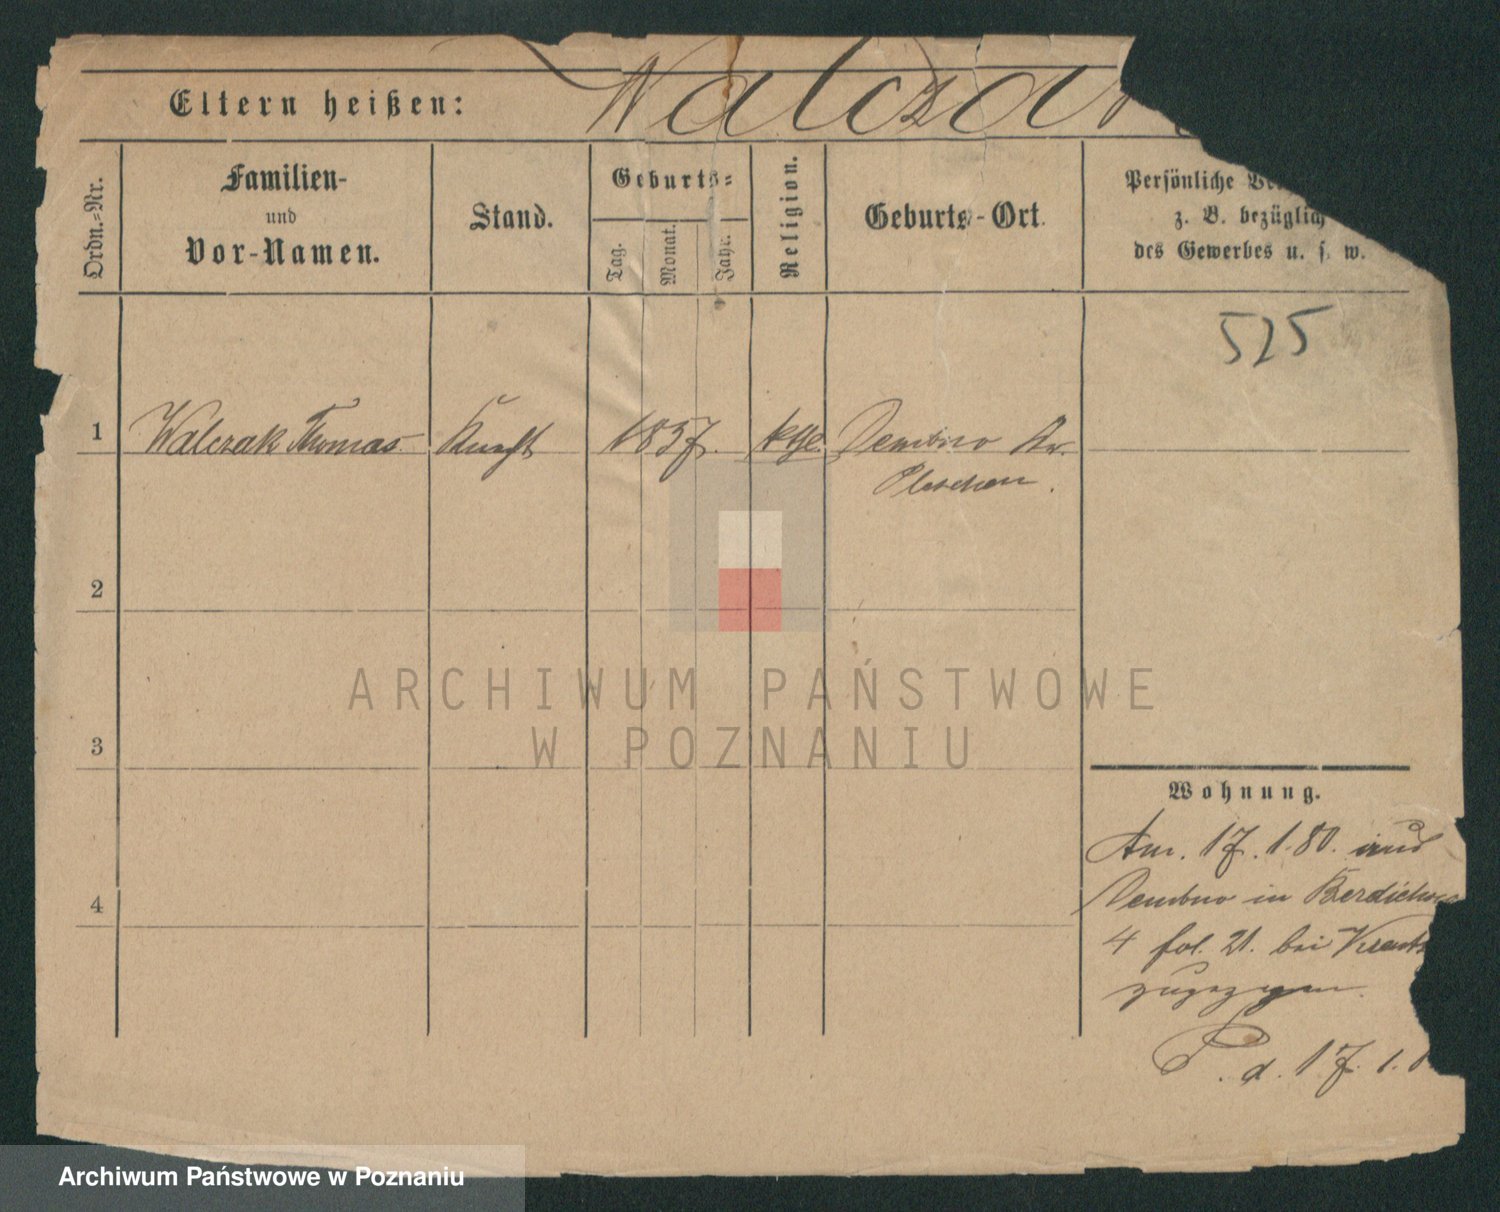 Walcza
Eltern heißen:
Ordn.-Nr.
Familien-
und
Vor-Namen.
Stand.
Geburts-
Tag.
Monat.
Jahr.
Religion.
Geburts-Ort.
Persönliche
z. B. bezüglich
des Gewerbes u. s. w.
525
1
Walczak Thomas
Knecht
1857.
ktge.
Dembno Kr.
Pleschen.
2
3
4
Wohnung.
Am. 17. 1. 80. aus
Dembno in Berdichow
4 fol. 21. bei
zugezogen.
P. d. 17. 1.
ARCHIWUM PAŃSTWOWE
W POZNANIU
Archiwum Państwowe w Poznaniu